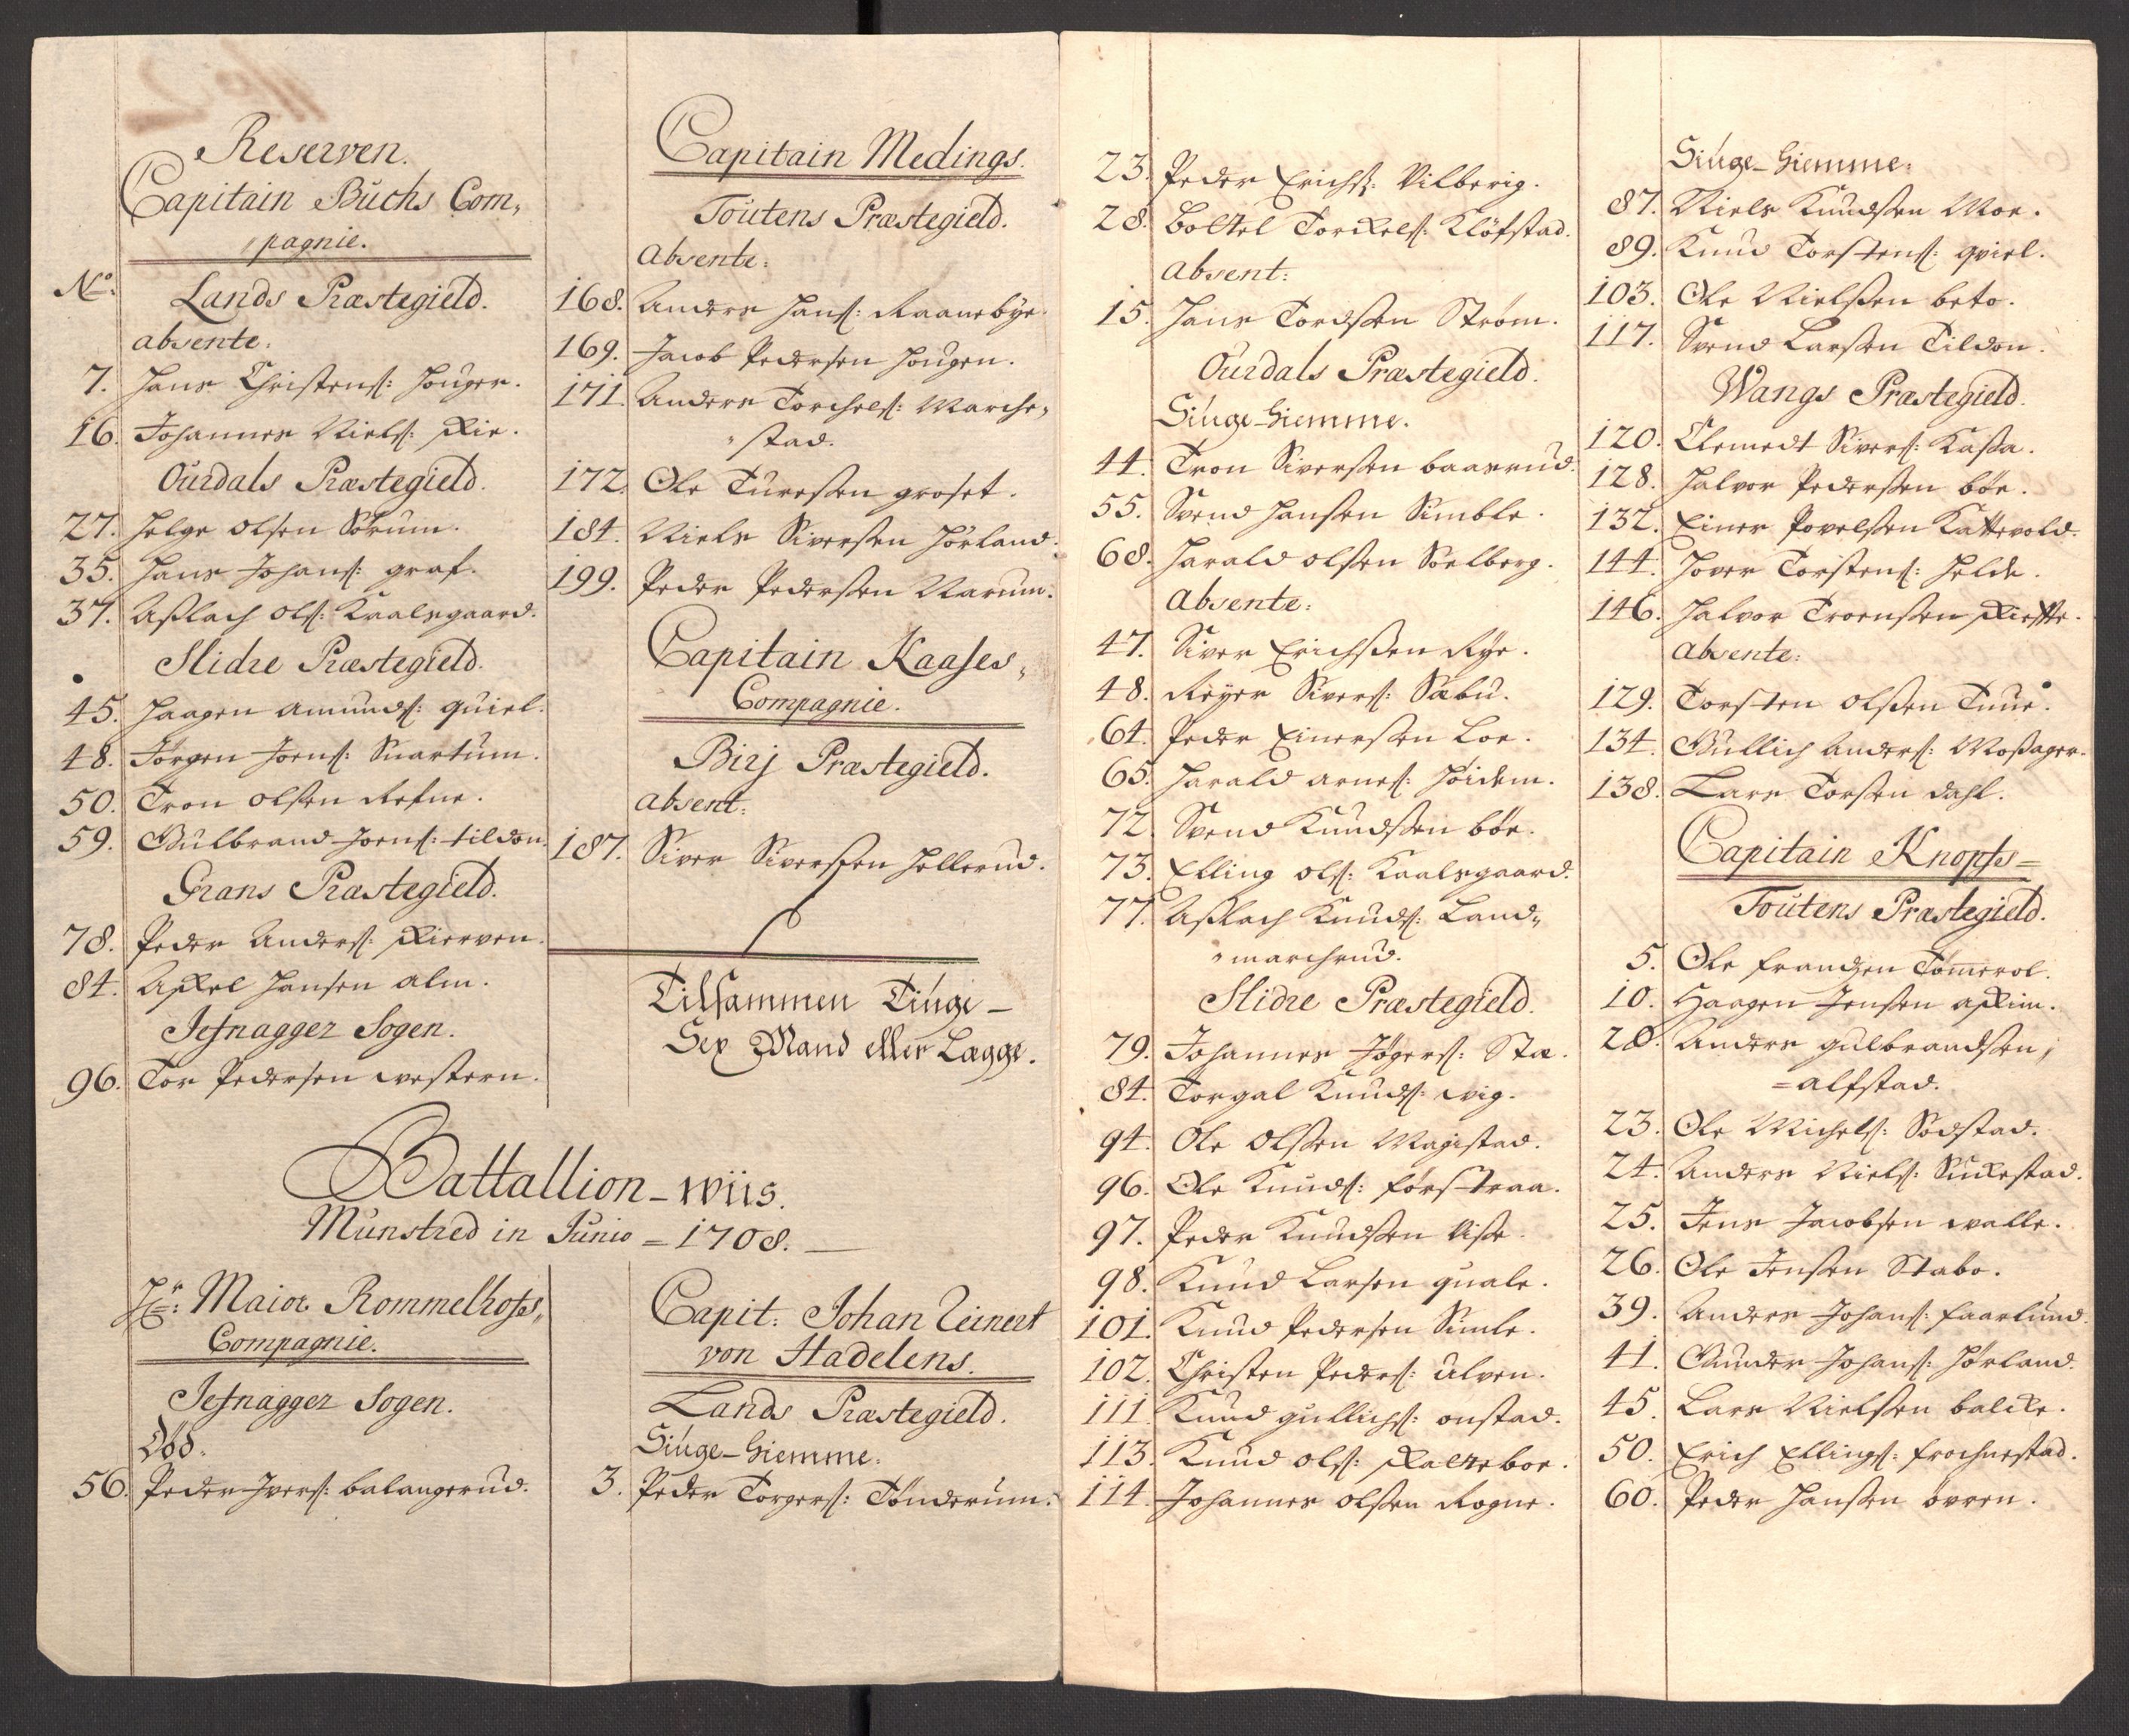 Reserven.
Capitain Buchs Com,
pagnie.
No:
Lands Præstegield.
absente.
7. Hans Christens: Houger.
16. Johannes Niels: Rie.
Ourdals Præstegield.
27. Helge Olsen Sörum.
35. Hans Johans: graf.
37. Aslach Ols: Kaalsgaard.
Slidre Præstegield.
45. Haagen Amunds: quiel.
48. Jörgen Joens: Snartum.
50. Tron Olsen Refne.
59. Gulbrand Joens: tildon.
Grans Præstegield.
78. Peder Anders: Kierven.
84. Axel Hansen alm.
Jefnagger Sogen.
96. Tor Pedersen western.
Capitain Medings.
Toutens Præstegield.
Absente:
168. Anders Hans: Raanebÿe.
169. Jacob Pedersen Hougen.
171. Anders Torchels: Marche,
stad.
172. Ole Turesen groset.
184. Niels Siversen Hörland.
199. Peder Pedersen Narum.
Capitain Kaases,
Compagnie.
Birj Præstegield.
absent.
187. Siver Siversen Hellerud.
Tilsammen Tiuge-
Sex Mand eller Lægge.
Battallion-wiis.
Munstred in Junio - 1708.
Hr: Maior Rommelhofs,
Compagnie.
Jefnagger Sogen.
Död.
56. Peder Ivers: balangerud.
Capit: Johan Reinert
von Hadelens.
Lands Præstegield.
Siuge-hiemme:
3. Peder Torgers: Tönderum.
23. Peder Erichs: Vilberig.
28. Boltel Torkels: Klöfstad.
absent:
15. Hans Tordsen Ström.
Ourdals Præstegield.
Siuge-hiemme.
44. Tron Siversen baasrud.
55. Svend Hansen Simble.
68. Harald Olsen Soelberg.
absente:
47. Siver Erichsen Rÿe.
48. Reÿer Sivers: Sæbu.
64. Peder Einersen Loe.
65. Harald arnes: Höidem.
72. Svend Knudsen böe.
73. Elling Ols: Kaalsgaard.
77. Aslach Knuds: Land,
marchrud.
Slidre Præstegield.
79. Johannes Jögers: Stæ.
84. Torgal Knuds: wig.
94. Ole Olsen Magistad.
96. Ole Knuds: förstraa.
97. Peder Knudsen Vise.
98. Knud Larsen quale.
101. Knud Pedersen Simle.
102. Christen Peders: Ulven.
111. Knud gullichs: onstad.
113. Knud ols: Kalteboe.
114. Johannes Olsen Rogne.
Siuge-hiemme:
87. Niels Knudsen Moe.
89. Knud Torstens: qviel.
103. Ole Nielsen beto.
117. Svend Larsen Tildon.
Wangs Præstegield.
120. Clemedt Sivers: Kasa.
128. Halvor Pedersen böe.
132. Einer Povelsen Kattevold.
144. Hover Torstens: Helde.
146. Halvor Troensen Kiette.
absente:
129. Torsten Olsen Tuue.
134. Gullich Anders: Mosager.
138. Lars Torsen dahl.
Capitain Knopfs=
Toutens Præstegield.
5. Ole frandzen Tömerol.
10. Haagen Jensen askim.
28. Anders gulbrandsen,
=alfstad.
23. Ole Michels: Södstad.
24. Anders Niels: Sukestad.
25. Jens Jacobsen walle.
26. Ole Jensen Stabo.
39. Anders Johans: faarlund.
41. Gunder Johans: Hörland.
45. Lars Nielsen balke.
50. Erich Ellings: frochnestad.
60. Peder Hansen övren.